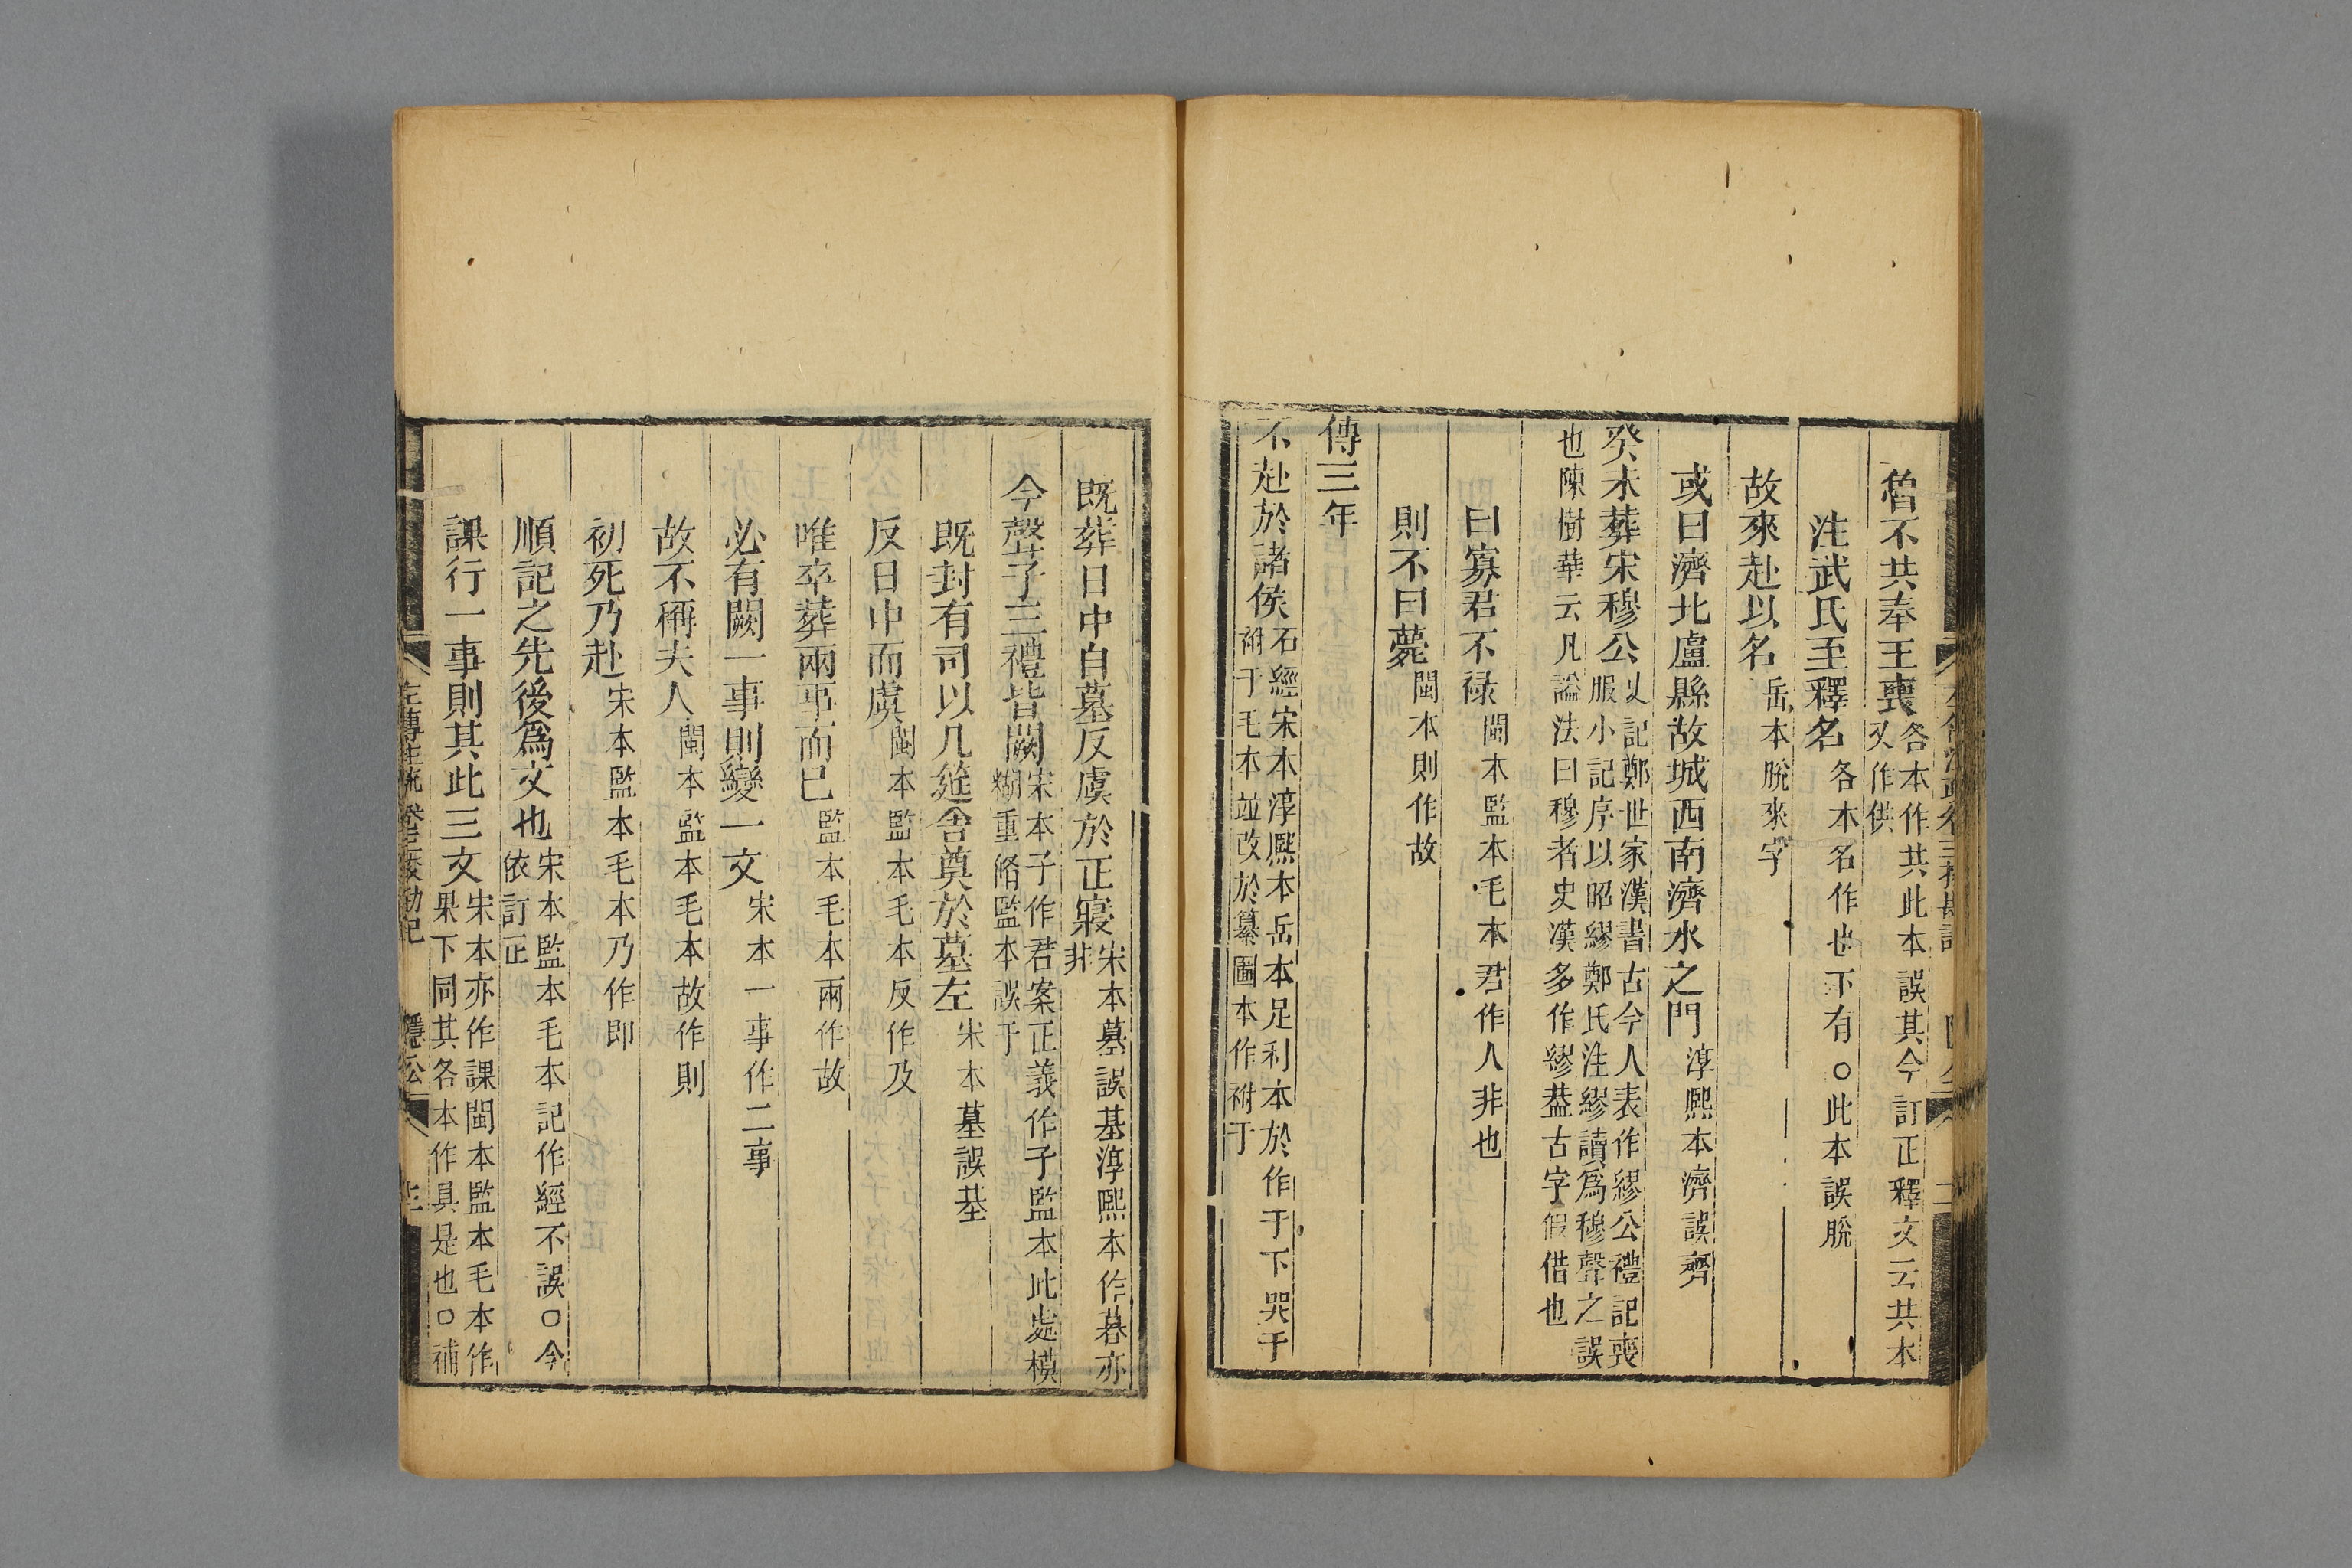 魯不共奉王喪各本作共此本誤其今訂正釋文云共本
又作供
注武氏至釋名各本名作也不有○此本誤脫
故來赴以名岳本脫來字
或曰濟北盧縣故城西南濟水之門淳熙本濟誤齊
癸未葬宋穆公史記鄭世家漢書古今人表作繆公禮記喪
服小記序以昭繆鄭氏注繆讀爲穆聲之誤
也陳樹華云凡謚法曰穆者史漢多作繆葢古字假借也
曰寡君不禄閩本監本毛本君作人非也
則不曰薨閩本則作故
傳三年
不赴於諸侯石經宋本淳熙本岳本足利本於作于下哭于
祔于毛本並改於纂圖本作祔于
既葬日中自墓反虞於正寢宋本墓誤基淳熙本作暮亦
非
今聲子三禮皆闕宋本子作君案正義作子監本此處模
糊重脩監本誤于
既封有司以几筵舍奠於墓左宋本墓誤基
反日中而虞閩本監本毛本反作及
唯卒葬兩事而已監本毛本兩作故
必有闕一事則變一文宋本一事作二事
故不稱夫人閩本監本毛本故作則
初死乃赴宋本監本毛本乃作即
順記之先後爲文也宋本監本毛本記作經不誤○今
依訂正
課行一事則其此三文宋本亦作課閩本監本毛本作
果下同其各本作具是也○補
左傳注疏 卷三校勘記 隱公